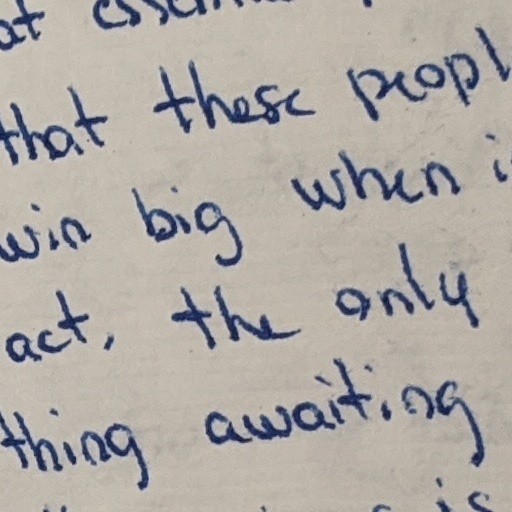 at
that these peopl
win big when i
act, the only
thing awaiting
is